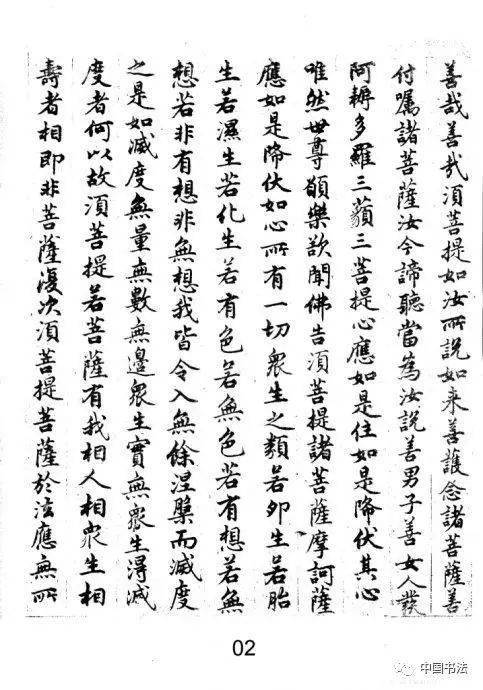 善哉善哉須菩提如汝所說如来善護念諸菩薩善
付嘱諸菩薩汝今諦聽當為汝說善男子善女人發
阿耨多羅三藐三菩提心應如是住如是降伏其心
唯然世尊願樂欲聞佛告須菩提諸菩薩摩訶薩
應如是降伏如心所有一切衆生之類若卵生若胎
生若濕生若化生若有色若無色若有想若無
想若非有想非無想我皆令入無餘涅槃而滅度
之是如滅度無量無數無邊衆生實無衆生得滅
度者何以故須菩提若菩薩有我相人相衆生相
壽者相即非菩薩復次須菩提菩薩於法應無所
02
中国书法